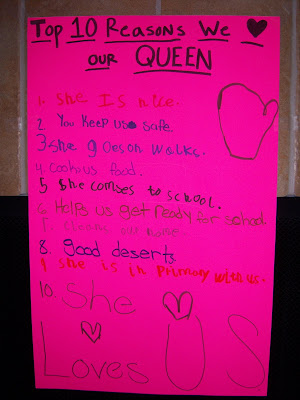 Top 10 Reasons We ♥
our QUEEN
1. she Is nice.
2. You Keep us safe.
3. she goes on walks.
4. cooks us food.
5 she comses to school.
6. Helps us get ready for school
7. cleans our house.
8. good deserts.
9 she is in primary with us.
10. She
Loves US